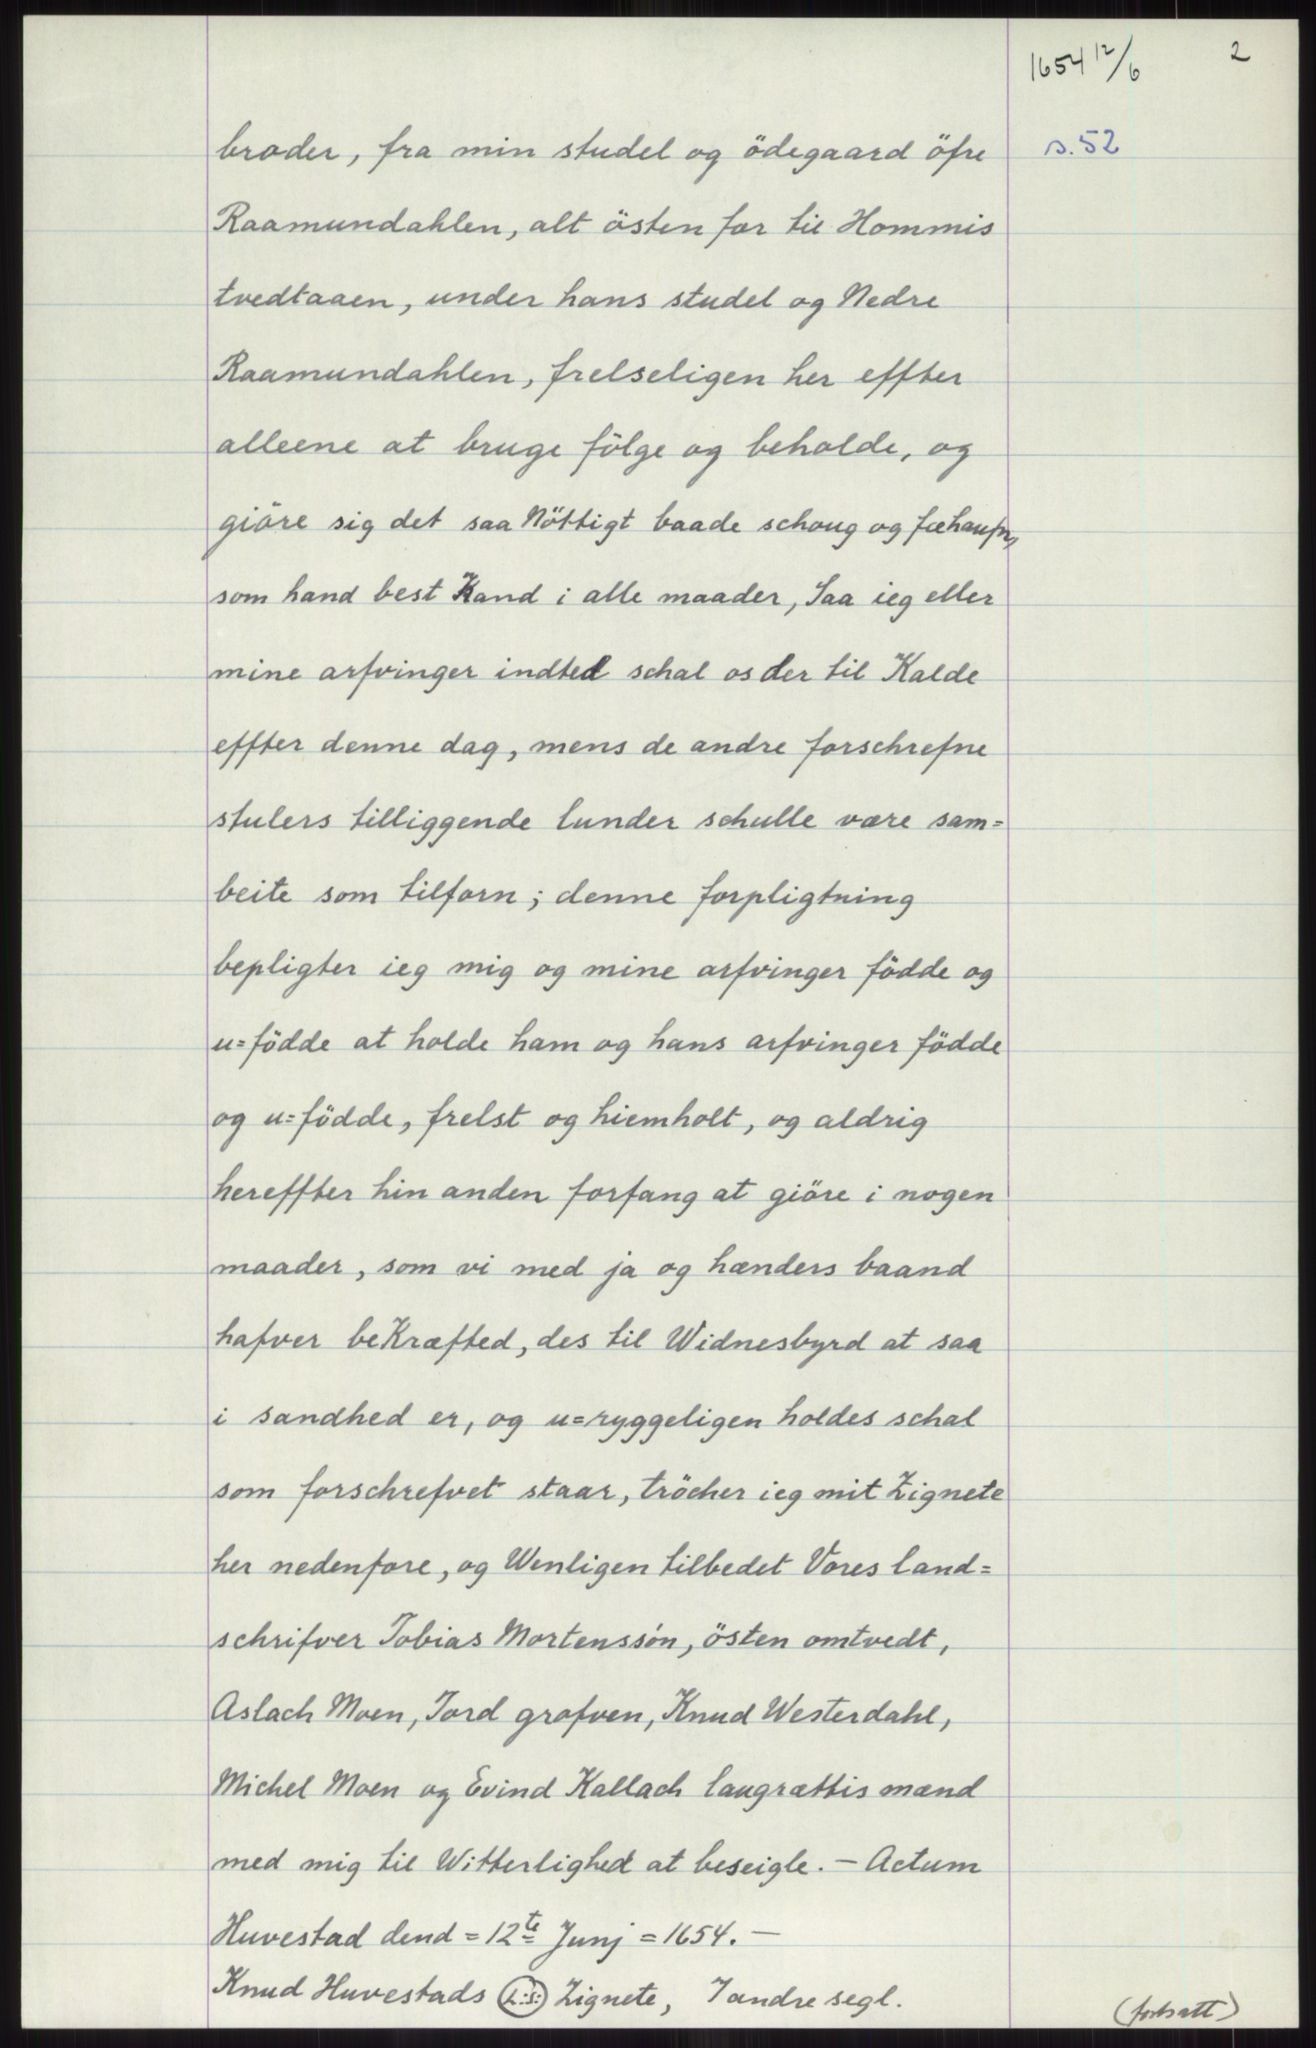 1654 12/6
2
broder, fra min studel og ödegaard öfre
s. 52
Raamundahlen, alt östen for til Hommis
tvedtaaen, under hans studel og Nedre
Raamundahlen, frelseligen her effter
alleene at bruge fölge og beholde, og
giöre sig det saa Nöttigt baade schoug og fæhaufn,
som hand best Kand i alle maader, Saa ieg eller
mine arfvinger indted schal os der til Kalde
effter denne dag, mens de andre forschrefne
stulers tilliggende lunder schulle være sam=
beite som tilforn; denne forpligtning
bepligter ieg mig og mine arfvinger födde og
u=födde at holde ham og hans arfvinger födde
og u=födde, frelst og hiemholt, og aldrig
hereffter hin anden forfang at giöre i nogen
maader, som vi med ja og hænders baand
hafver beKræfted, des til Widnesbyrd at saa
i sandhed er, og u=ryggeligen holdes schal
som forschrefvet staar, tröcher ieg mit Zignete
her nedenfore, og Wenligen tilbedet Vores land=
schrifver Tobias Mortenssön, östen omtvedt,
Aslach Moen, Tord grafven, Knud Westerdahl,
Michel Moen og Evind Kallach laugrættis mænd
med mig til Witterlighed at beseigle. – Actum
Huvestad dend = 12te Junj = 1654. –
Knud Huvestads L:S: Zignete, 7 andre segl.
(fortsatt)